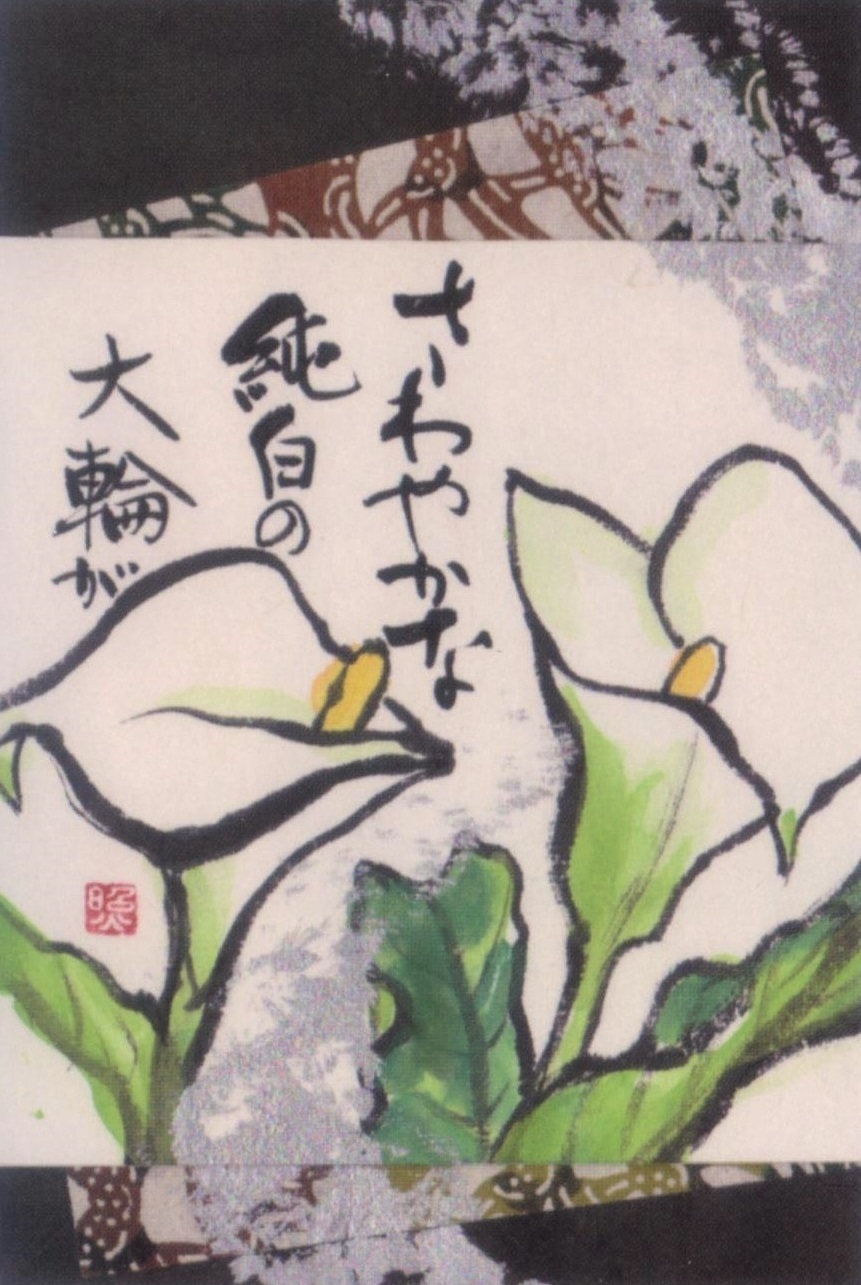 さわやかな
純白の
大輪が